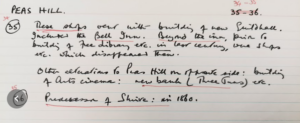 PEAS HILL.
35-36.
35 These shops went with building of new Guildhall.
Includes the Bell Inn. Beyond the inn, prior to
building of Free Library etc. in last century, was shops
etc. which disappeared then.
Other alterations to Peas Hill on opposite side: building
of Arts cinema: new bank (Three Tuns) etc.
36 Predecessor of Shire: in 1860.